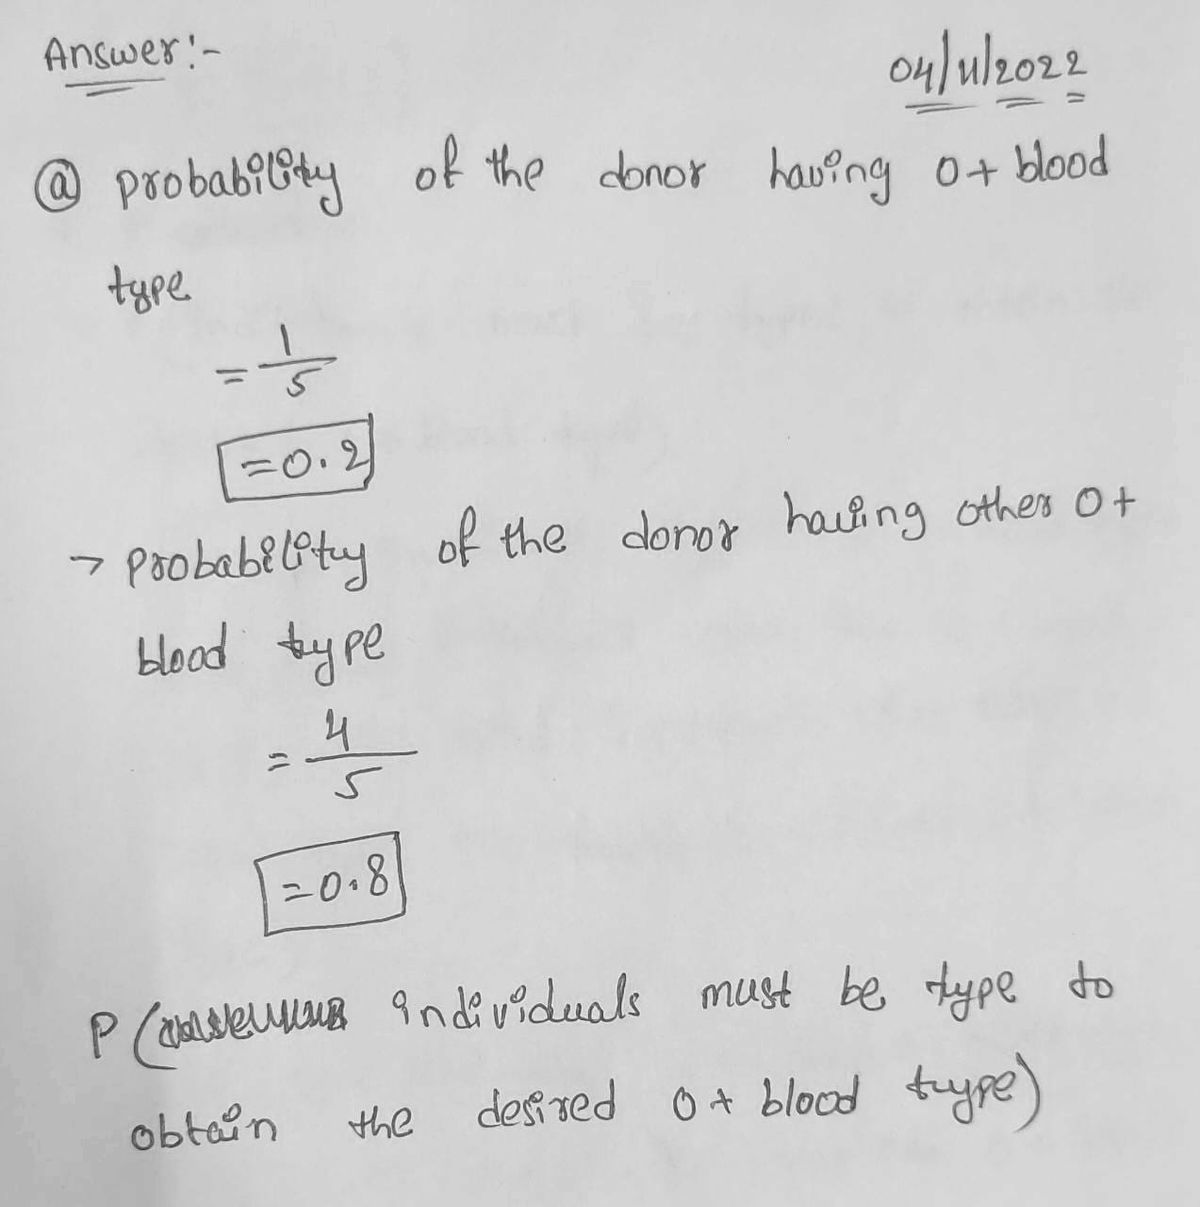 Answer:-
04/11/2022
ⓐ probability of the donor having O+ blood
type
= 1/5
=0.2
→ probability of the donor having other O+
blood type
= 4/5
=0.8
P ( individuals must be type to
obtain the desired O+ blood type)